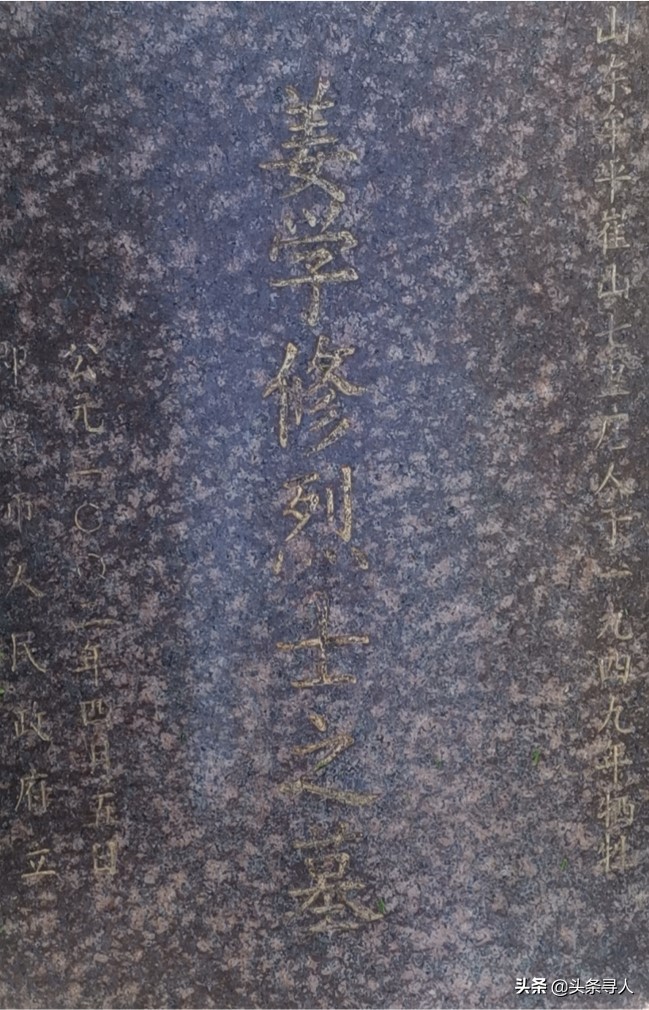 山东牟平崔山七里庄人于一九四九年牺牲
姜学修烈士之墓
公元二〇〇二年四月五日
即墨市人民政府立
头条 @头条寻人